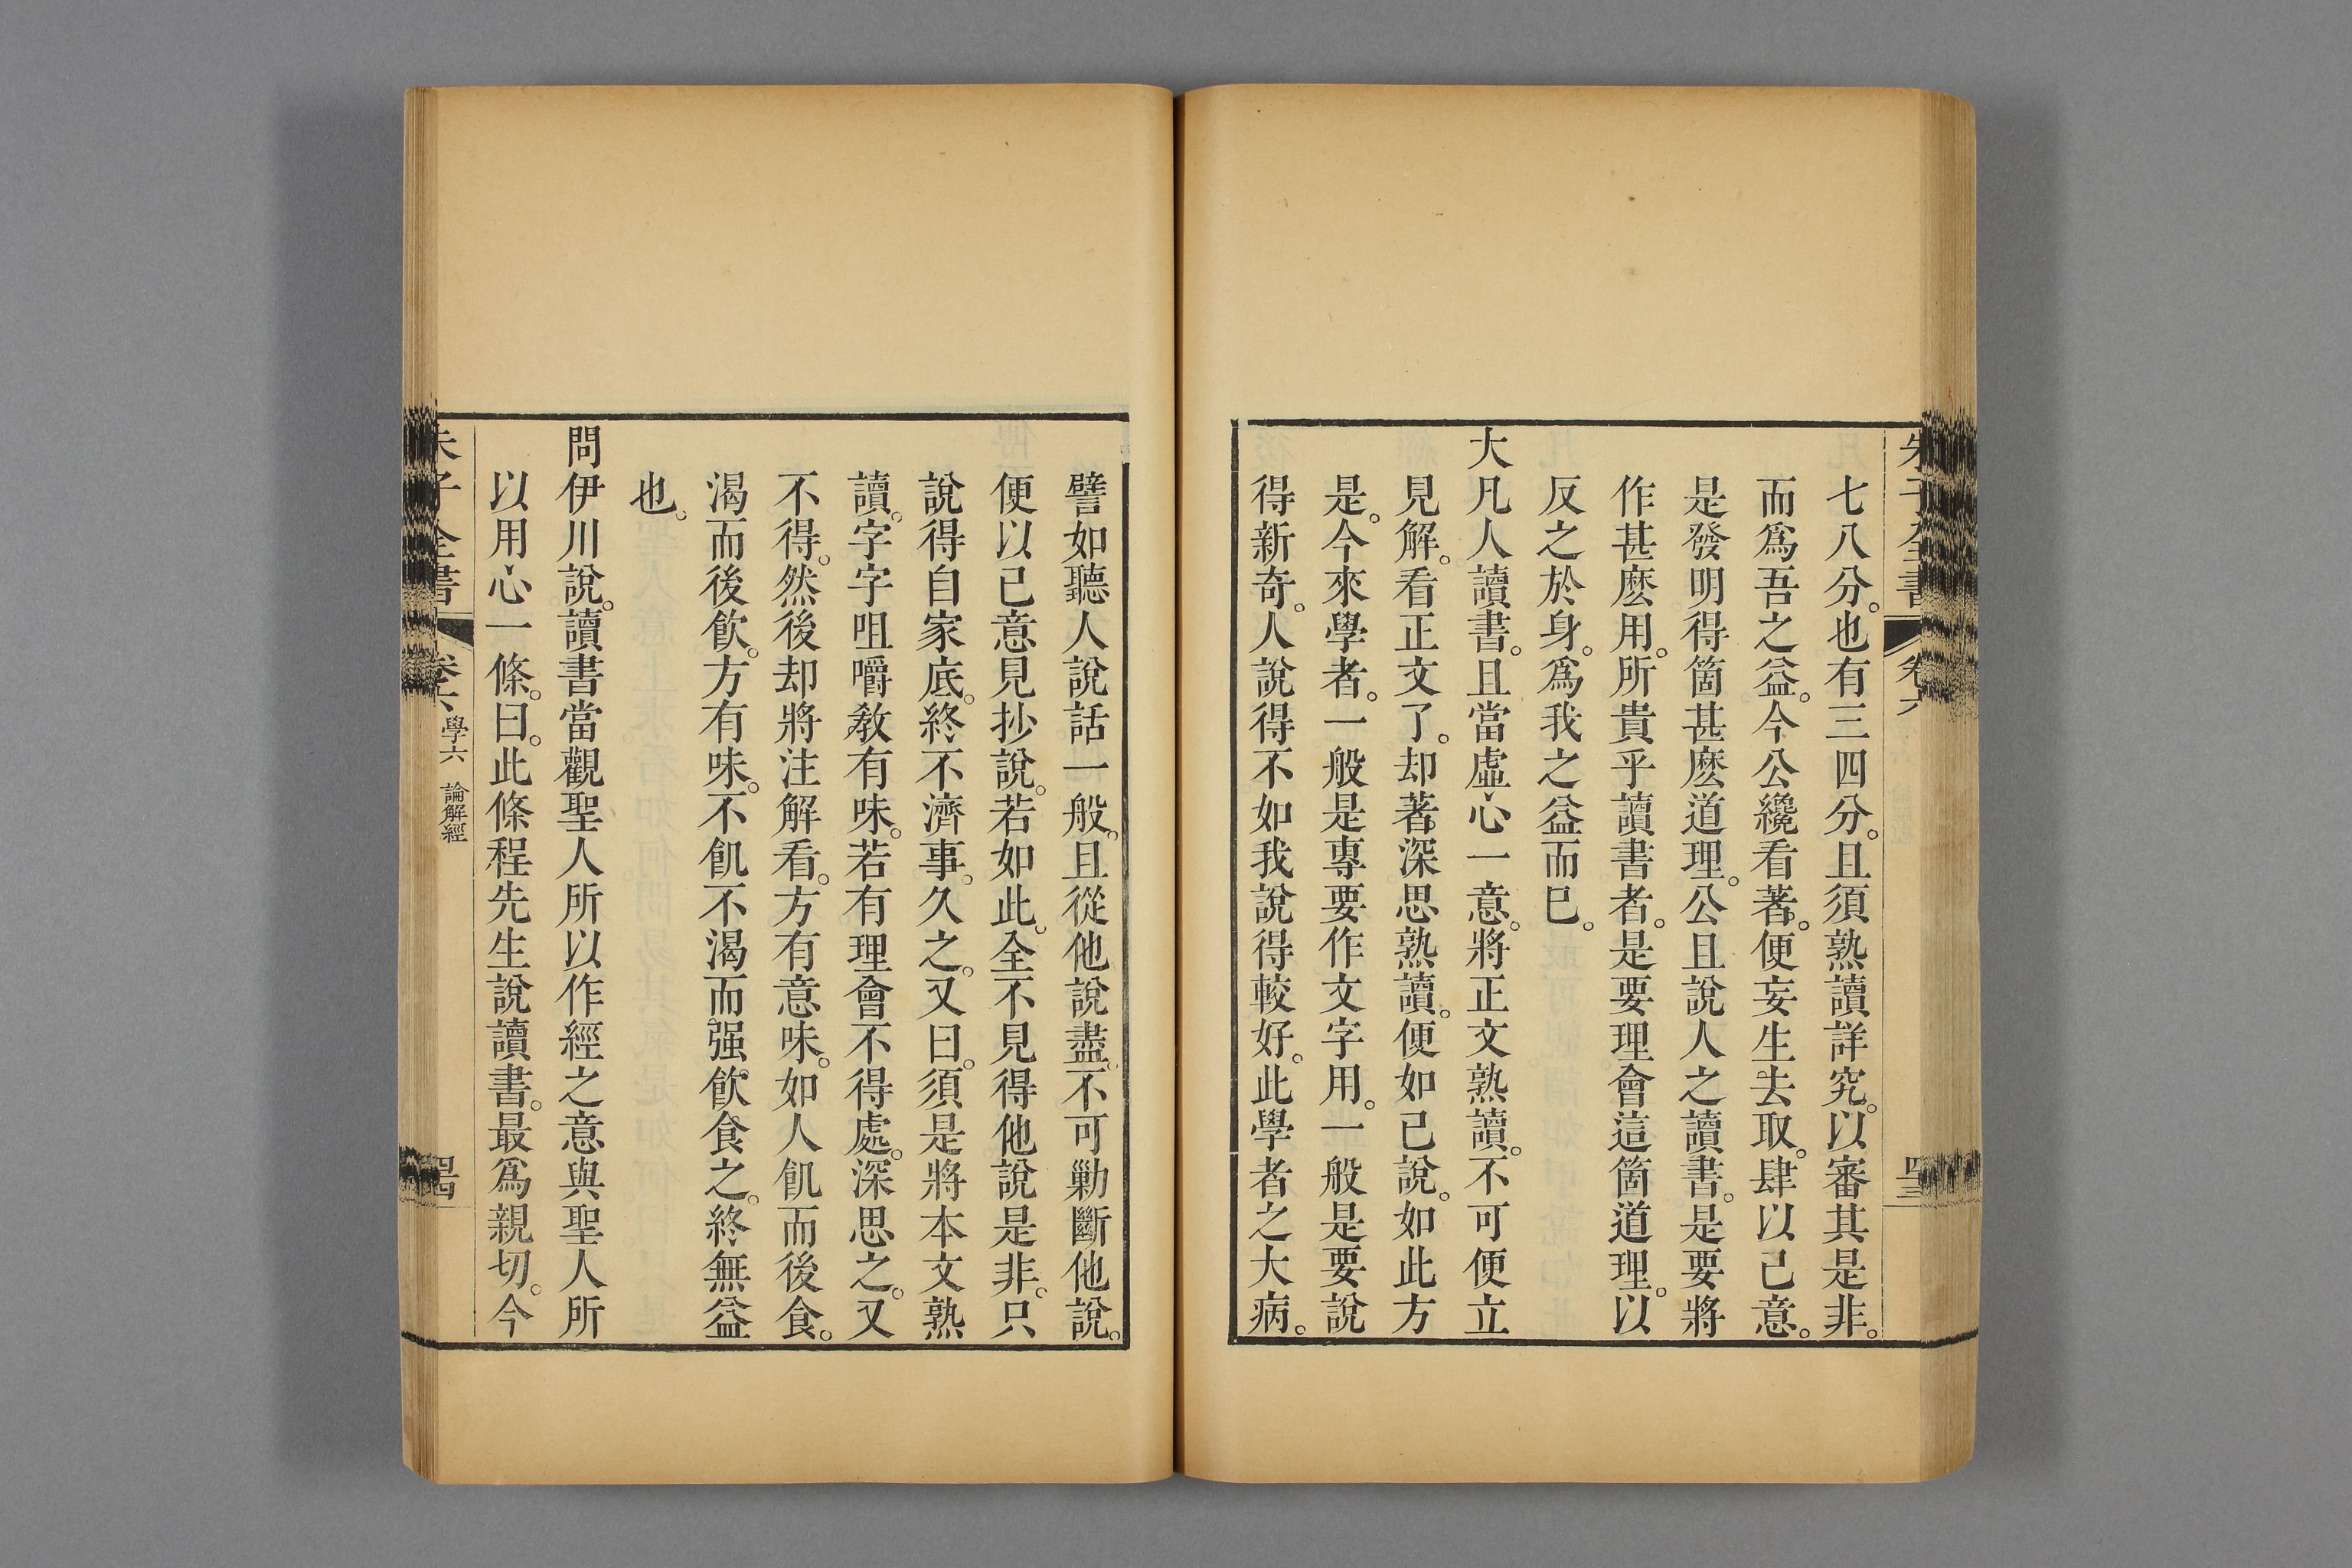 七八分。也有三四分。且須熟讀詳究。以審其是非。
而爲吾之益。今公纔看著。便妄生去取。肆以己意。
是發明得箇甚麽道理。公且說人之讀書。是要將
作甚麽用。所貴乎讀書者。是要理會這箇道理。以
反之於身。爲我之益而已。
大凡人讀書。且當虛心一意。將正文熟讀。不可便立
見解。看正文了。却著深思熟讀。便如己說。如此方
是。今來學者。一般是專要作文字用。一般是要說
得新奇。人說得不如我說得較好。此學者之大病。
譬如聽人說話一般。且從他說盡。不可勦斷他說。
便以己意見抄說。若如此。全不見得他說是非。只
說得自家底。終不濟事。久之。又曰。須是將本文熟
讀。字字咀嚼敎有味。若有理會不得處。深思之。又
不得。然後却將注解看。方有意味。如人飢而後食。
渴而後飮。方有味。不飢不渴而强飮食之。終無益
也。
問伊川說。讀書當觀聖人所以作經之意與聖人所
以用心一條。曰。此條程先生說讀書。最爲親切。今
朱子全書
卷六
學六
論解經
四十四
朱子全書
卷六
四十三